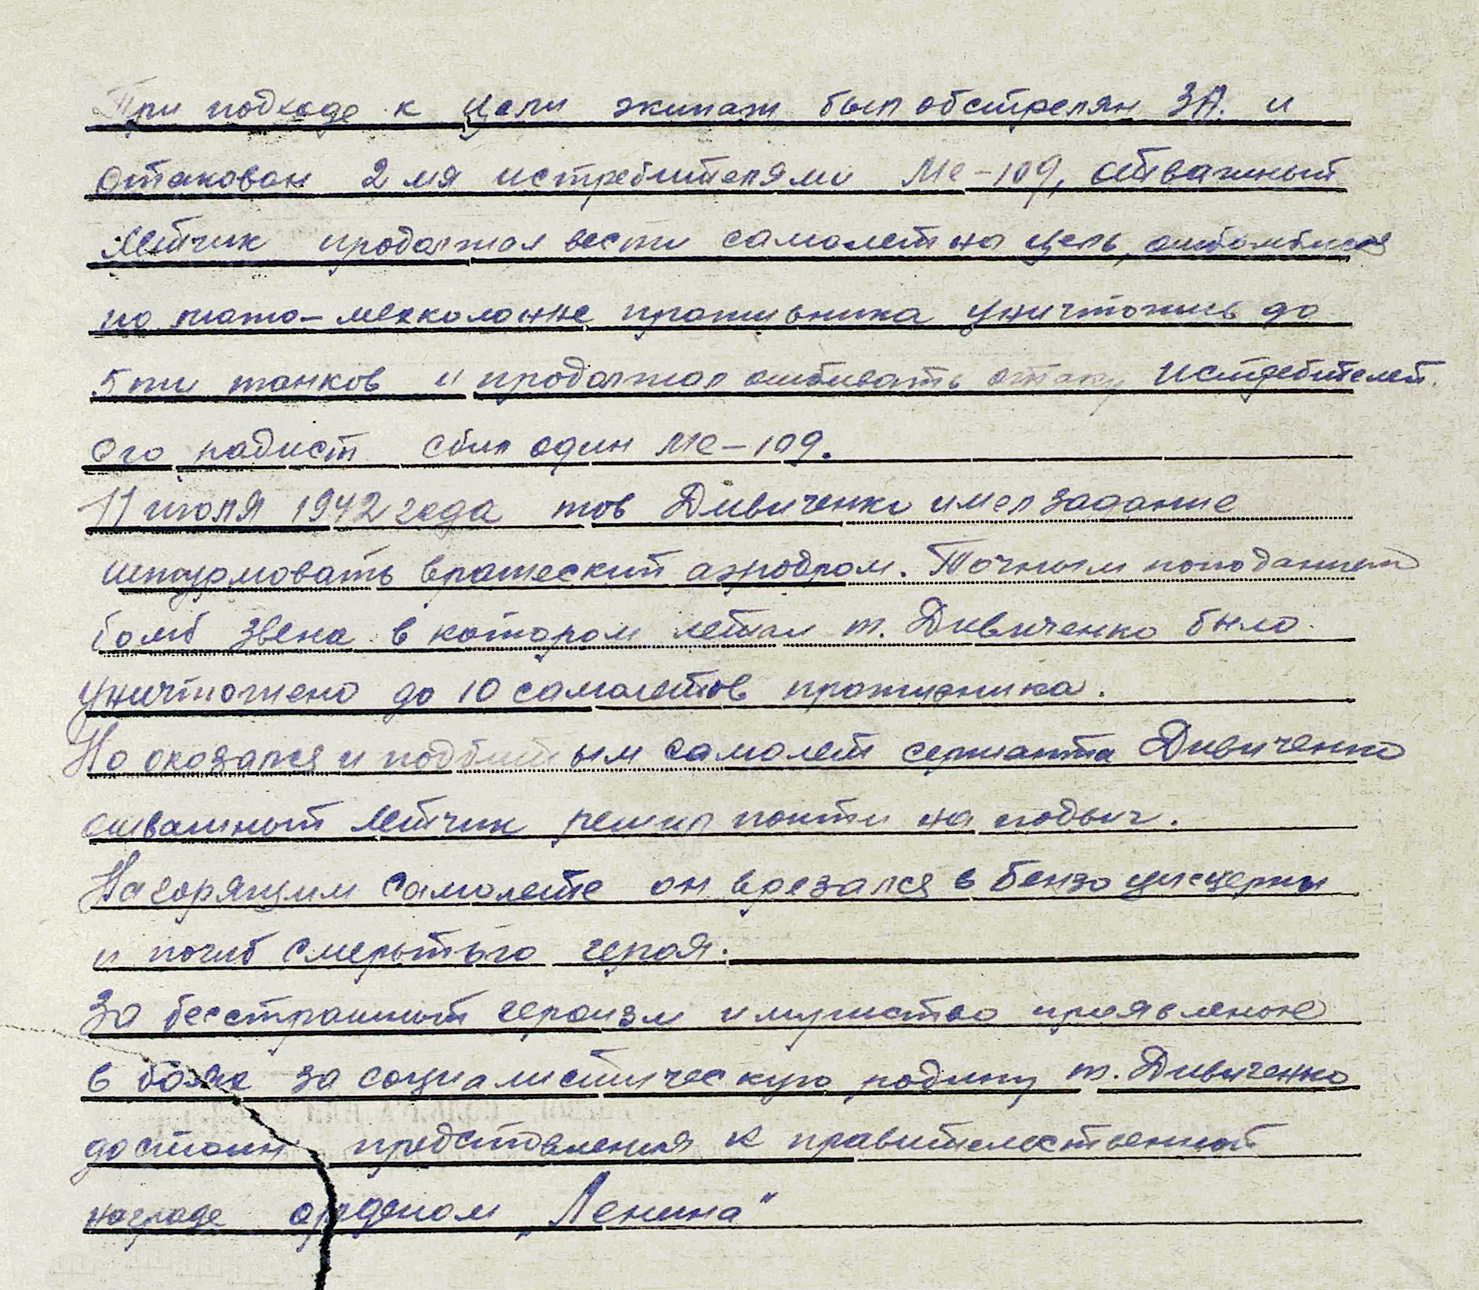 При подходе к цели экипаж был обстрелян ЗА. и
атакован 2мя истребителями Ме-109, отважный
летчик продолжал вести самолет на цель, отбомбился
по мото-мехколонне противника уничтожив до
5ти танков и продолжал отбивать атаку истребителей.
его радист сбил один Ме-109.
11 июля 1942 года тов Дивиченко имел задание
штурмовать вражеский аэродром. Точным попаданием
бомб звена в котором летал т. Дивиченко было
уничтожено до 10 самолетов противника.
Но оказался и подбитым самолет сержанта Дивиченко
отважный летчик решил пойти на подвиг.
На горящим самолете он врезался в бензо цисцерны
и погиб смертью героя.
За бесстрашный героизм и мужиство проявленое
в боях за социалистическую родину т. Дивиченко
достоин представления к правительственной
награде орденом „Ленина"